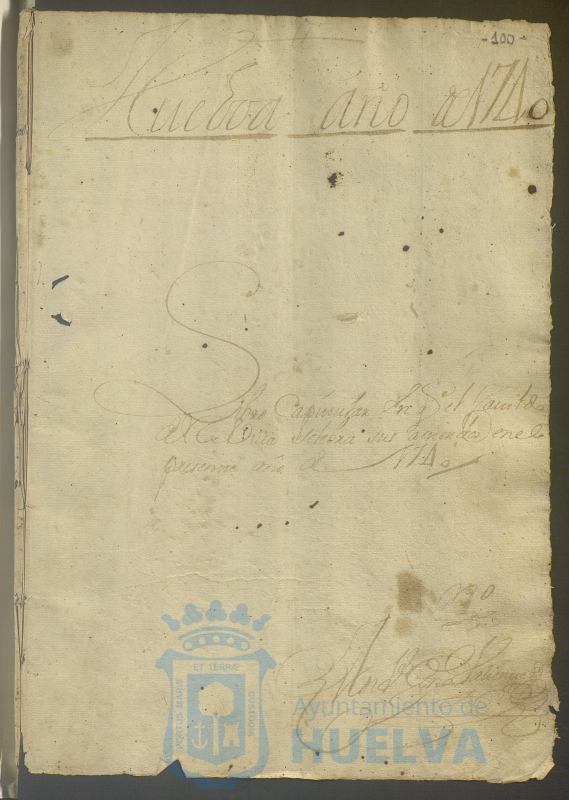 - 100 -
Huelva año de 1740
Libro Capitular En q el Cavildo
de la Villa sus acuerdos en el
presente año de 1740
ET TERRÆ
PORTUS MARIS
CUSTODIA
Ayuntamiento de
HUELVA